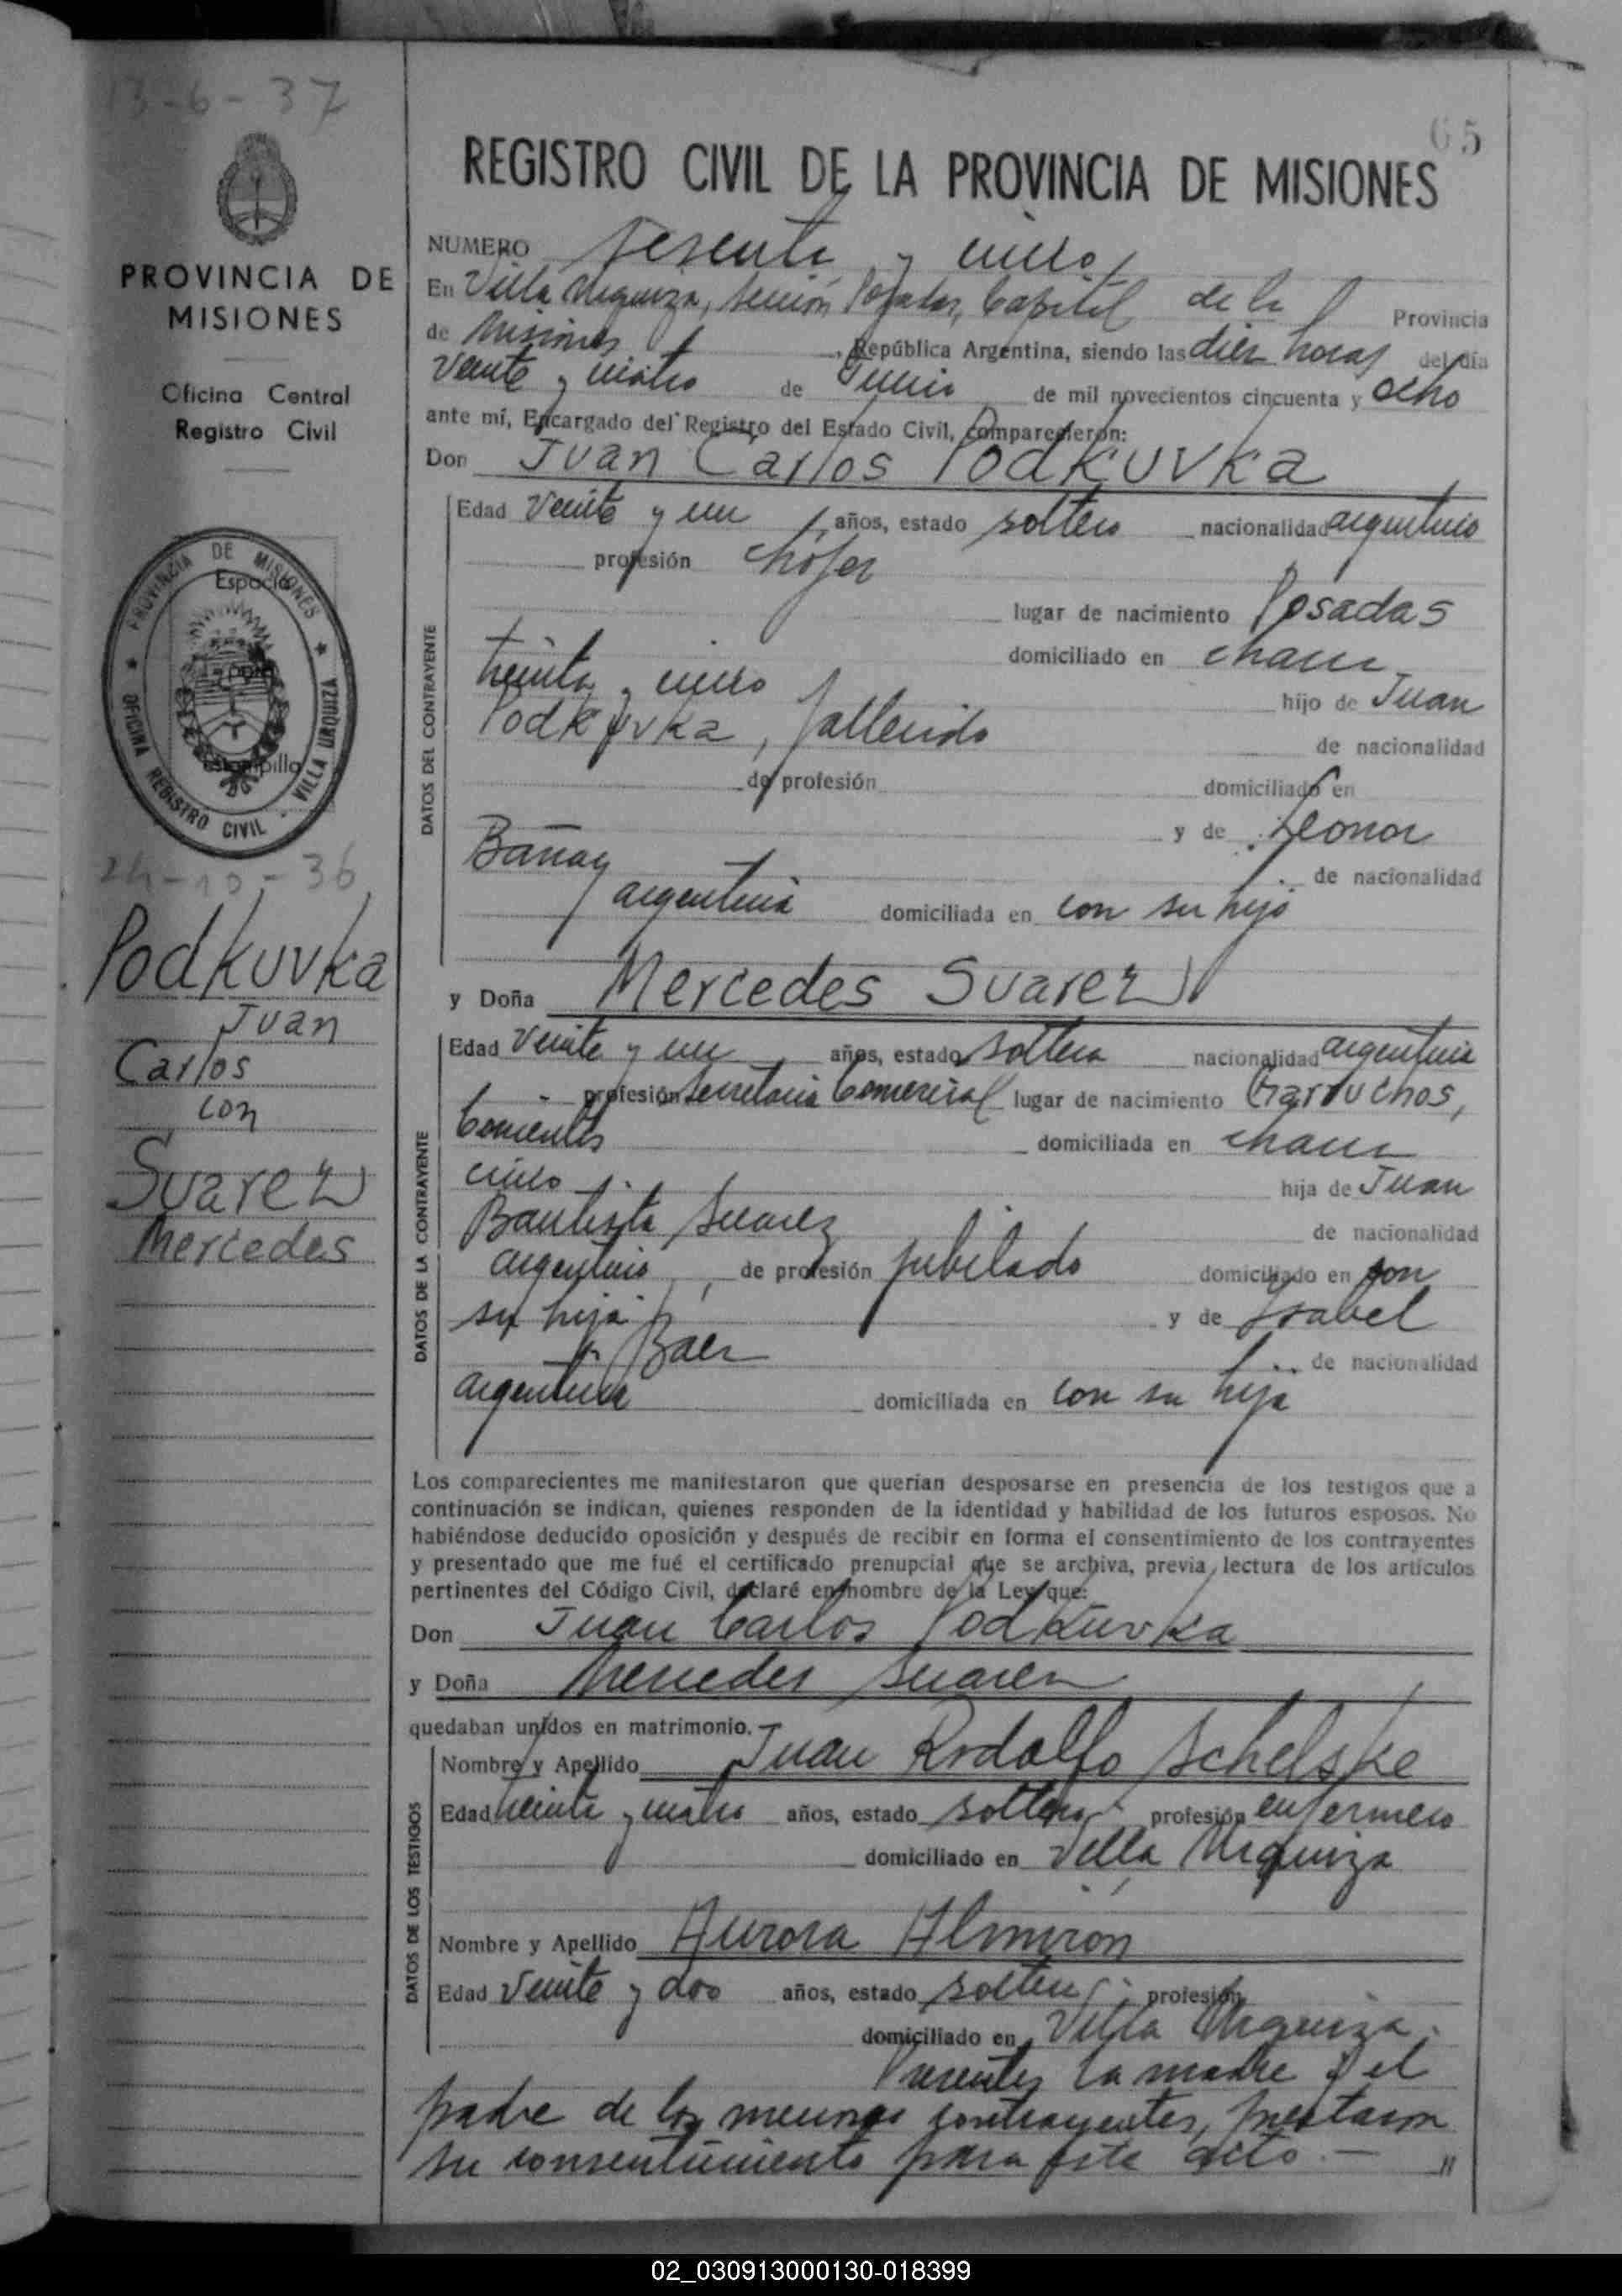 13-6-37
65
PROVINCIA DE
MISIONES
Oficina Central
Registro Civil
PROVINCIA DE MISIONES
Espacio
para
Estampilla
OFICINA REGISTRO CIVIL - VILLA URQUIZA
24-10-36
Podkuvka
Juan
Carlos
con
Suarez
Mercedes
REGISTRO CIVIL DE LA PROVINCIA DE MISIONES
NUMERO sesenta y cinco
En Villa Urquiza, Sección Posadas, Capital de la Provincia
de Misiones, República Argentina, siendo las diez horas del día
veinte y cuatro de Junio de mil novecientos cincuenta y ocho
ante mí, Encargado del Registro del Estado Civil, comparecieron:
Don Juan Carlos Podkuvka
DATOS DEL CONTRAYENTE
Edad veinte y un años, estado soltero nacionalidad argentino
profesión chófer
lugar de nacimiento Posadas
domiciliado en chacra
treinta y cinco hijo de Juan
Podkuvka, fallecido de nacionalidad
de profesión domiciliado en
y de Leonor
Bañay de nacionalidad
argentina domiciliada en con su hijo
y Doña Mercedes Suarez
DATOS DE LA CONTRAYENTE
Edad veinte y un años, estado soltera nacionalidad argentina
profesión Secretaria Comercial lugar de nacimiento Garruchos,
Corrientes domiciliada en chacra
cinco hija de Juan
Bautista Suarez de nacionalidad
argentino, de profesión jubilado domiciliado en con
su hija y de Ysabel
Baez de nacionalidad
argentina domiciliada en con su hija
Los comparecientes me manifestaron que querían desposarse en presencia de los testigos que a
continuación se indican, quienes responden de la identidad y habilidad de los futuros esposos. No
habiéndose deducido oposición y después de recibir en forma el consentimiento de los contrayentes
y presentado que me fué el certificado prenupcial que se archiva, previa lectura de los artículos
pertinentes del Código Civil, declaré en nombre de la Ley que:
Don Juan Carlos Podkuvka
y Doña Mercedes Suarez
quedaban unidos en matrimonio.
DATOS DE LOS TESTIGOS
Nombre y Apellido Juan Rodolfo Schelske
Edad veinte y cuatro años, estado soltero profesión enfermero
domiciliado en Villa Urquiza
Nombre y Apellido Aurora Almiron
Edad veinte y dos años, estado soltera profesión
domiciliado en Villa Urquiza.
Presentes la madre y el
padre de los menores contrayentes, prestaron
su consentimiento para este acto. — "
02_030913000130-018399